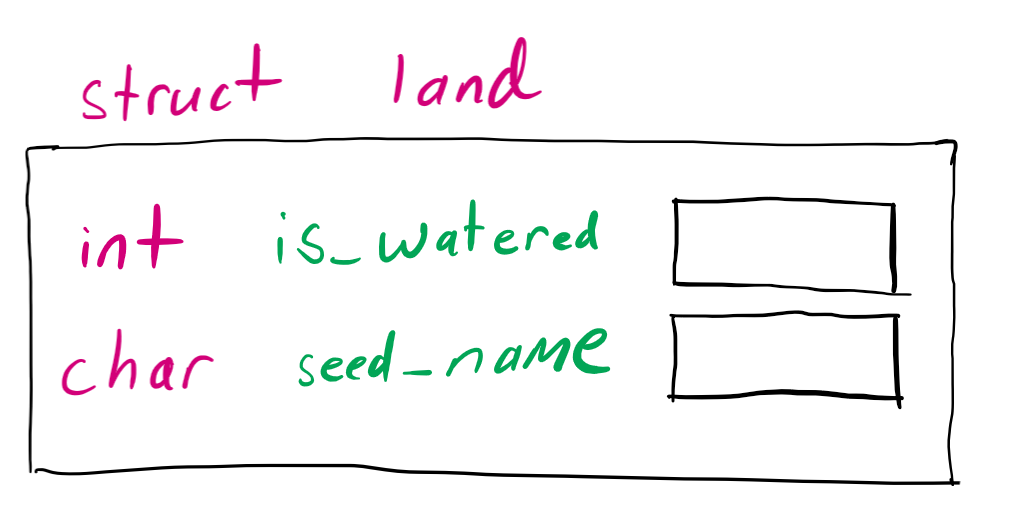 struct land
int is_watered
char seed_name